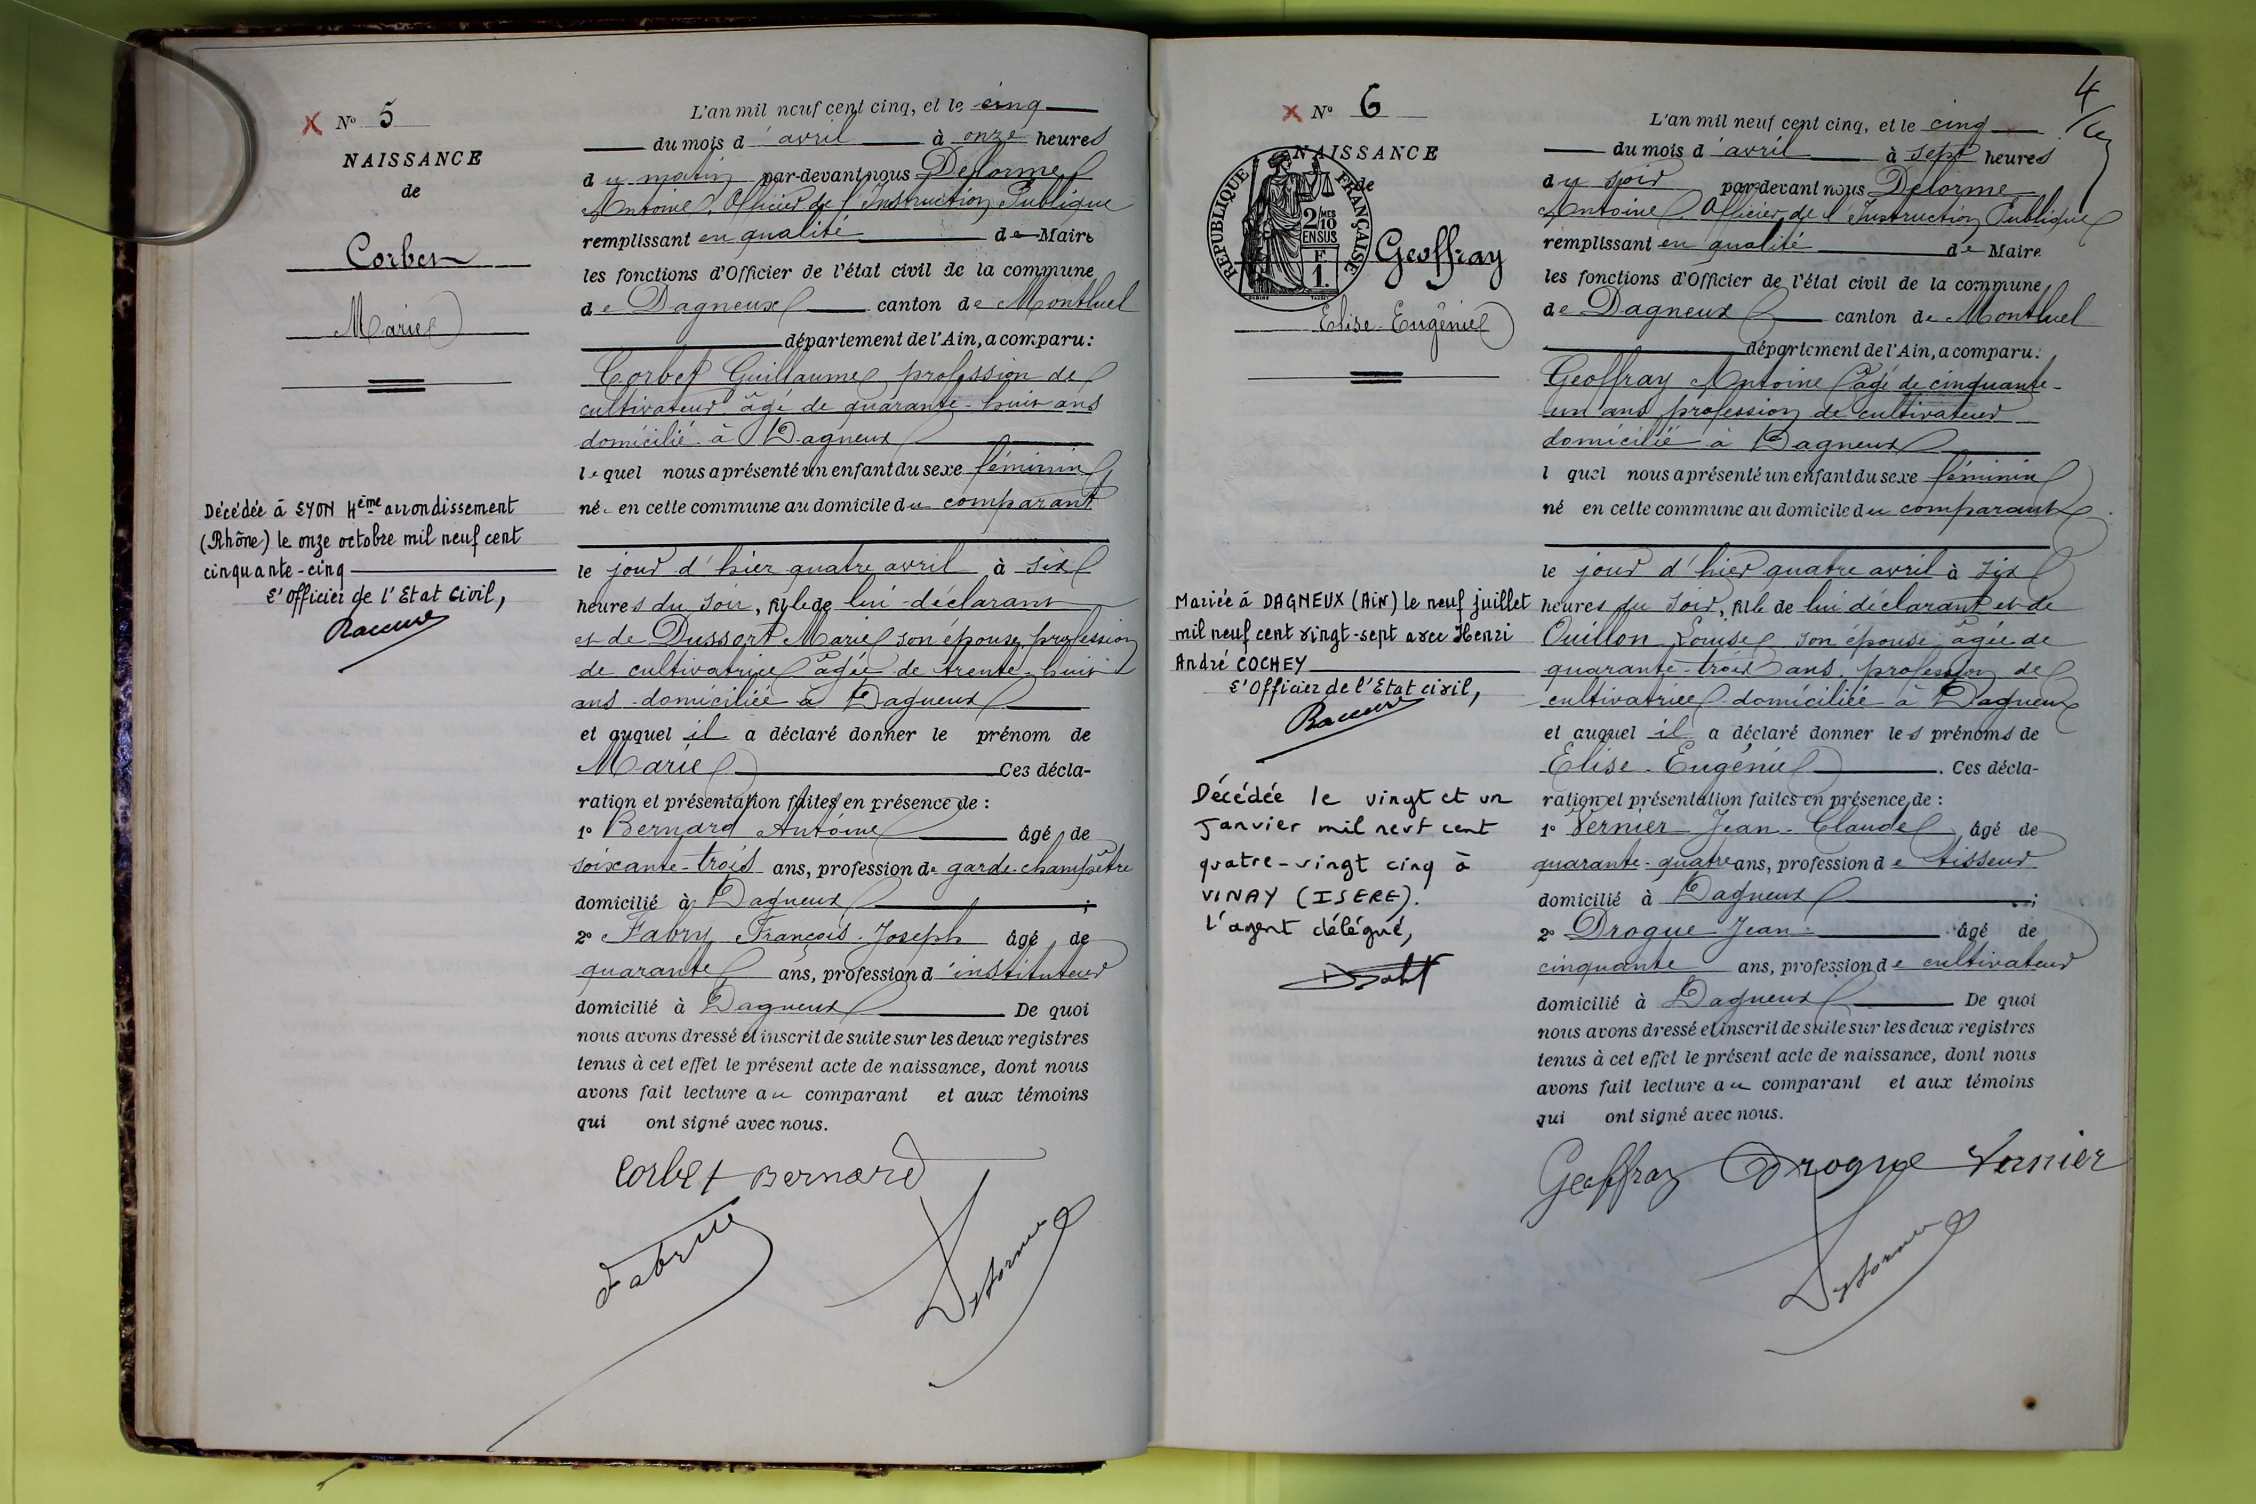 X Nº 5
NAISSANCE
de
Corbet
Marie
Décédée à LYON 4ème arrondissement
(Rhône) le onze octobre mil neuf cent
cinquante-cinq
L'Officier de l'Etat Civil,
L'an mil neuf cent cinq, et le cinq
du mois d'avril à onze heures
du matin par-devant nous Delorme
Antoine, Officier de l'Instruction Publique
remplissant en qualité de Maire
les fonctions d'Officier de l'état civil de la commune
de Dagneux canton de Montluel
département de l'Ain, a comparu:
Corbet Guillaume profession de
cultivateur âgé de quarante-huit ans
domicilié à Dagneux
lequel nous a présenté un enfant du sexe féminin
né en cette commune au domicile du comparant
le jour d'hier quatre avril à six
heures du soir, fille de lui déclarant
et de Dussort Marie son épouse profession
de cultivatrice âgée de trente-huit
ans domiciliée à Dagneux
et auquel il a déclaré donner le prénom de
Marie Ces décla-
ration et présentation faites en présence de :
1º Bernard Antoine âgé de
soixante-trois ans, profession de garde-champêtre
domicilié à Dagneux ;
2º Fabry François-Joseph âgé de
quarante ans, profession d'instituteur
domicilié à Dagneux De quoi
nous avons dressé et inscrit de suite sur les deux registres
tenus à cet effet le présent acte de naissance, dont nous
avons fait lecture au comparant et aux témoins
qui ont signé avec nous.
Corbet Bernard
Fabry Delorme
4
X Nº 6
NAISSANCE
de
RÉPUBLIQUE FRANÇAISE
2/10 MES
EN SUS
F
1.
Geoffray
Elise-Eugénie
Mariée à DAGNEUX (Ain) le neuf juillet
mil neuf cent vingt-sept avec Henri
André COCHEY
L'Officier de l'Etat civil,
Décédée le vingt et un
Janvier mil neuf cent
quatre-vingt cinq à
VINAY (ISERE).
l'agent délégué,
L'an mil neuf cent cinq, et le cinq
du mois d'avril à sept heures
du soir par-devant nous Delorme
Antoine Officier de l'Instruction Publique
remplissant en qualité de Maire
les fonctions d'Officier de l'état civil de la commune
de Dagneux canton de Montluel
département de l'Ain, a comparu:
Geoffray Antoine âgé de cinquante-
un ans profession de cultivateur
domicilié à Dagneux
l quel nous a présenté un enfant du sexe féminin
né en cette commune au domicile du comparant
le jour d'hier quatre avril à six
heures du soir, fille de lui déclarant et de
Quillon Louise son épouse âgée de
quarante-trois ans profession de
cultivatrice domiciliée à Dagneux
et auquel il a déclaré donner les prénoms de
Elise-Eugénie . Ces décla-
ration et présentation faites en présence de :
1º Vernier Jean-Claude âgé de
quarante-quatre ans, profession de tisseur
domicilié à Dagneux ;
2º Drogue Jean âgé de
cinquante ans, profession de cultivateur
domicilié à Dagneux De quoi
nous avons dressé et inscrit de suite sur les deux registres
tenus à cet effet le présent acte de naissance, dont nous
avons fait lecture au comparant et aux témoins
qui ont signé avec nous.
Geoffray Drogue Vernier
Delorme